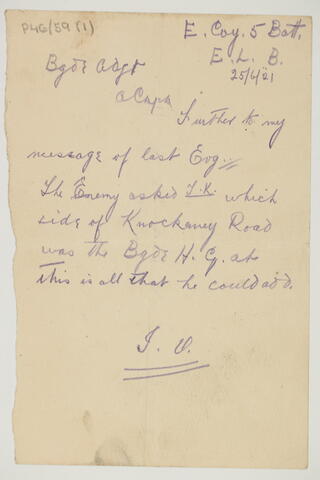 P46/59 (1)
E. Coy. 5 Batt.
E. L. B.
25/6/21
Bgde Adgt
a Cara
Further to my
message of last Evg.
The Enemy asked T.K. which
side of Knockaney Road
was the Bgde H. Q. at
this is all that he could add.
I. O.